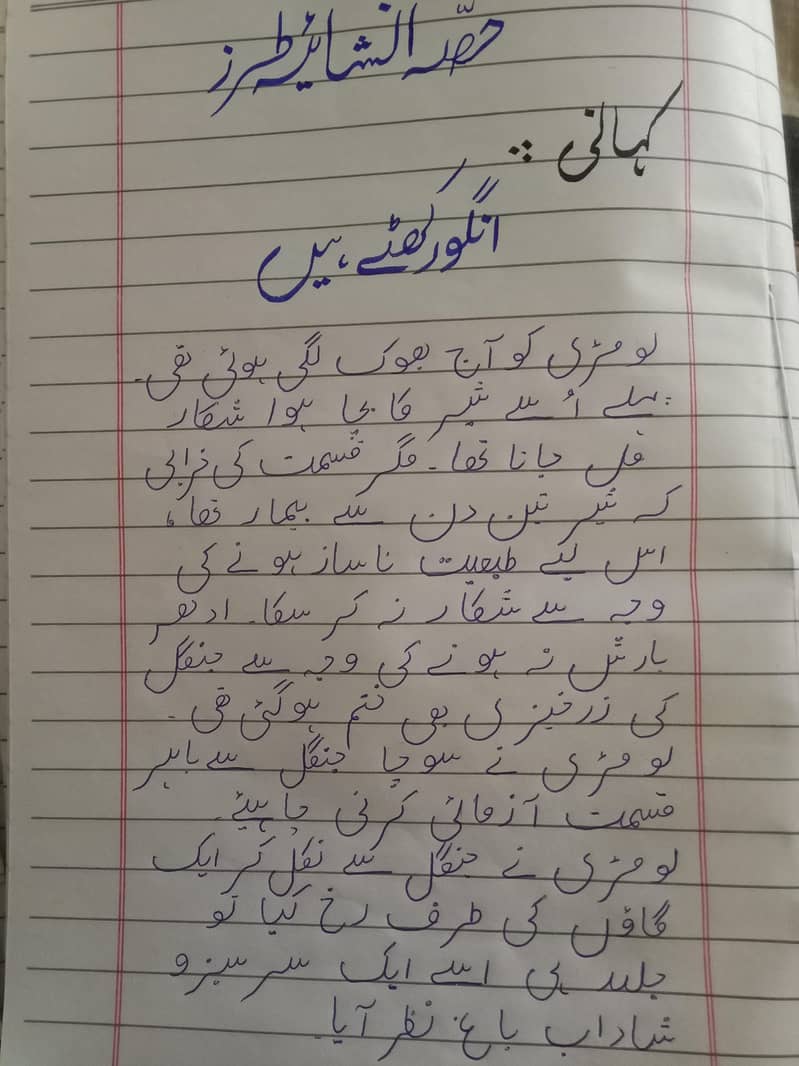 حصہ انشائیہ طرز
کہانی :
انگور کھٹے ہیں
لومڑی کو آج بھوک لگی ہوئی تھی۔
پہلے اُسے شیر کا بچا ہوا شکار
مل جاتا تھا۔ مگر قسمت کی خرابی
کہ شیر تین دن سے بیمار تھا،
اس لیے طبعیت ناساز ہونے کی
وجہ سے شکار نہ کر سکا۔ ادھر
بارش نہ ہونے کی وجہ سے جنگل
کی زرخیزی بھی ختم ہوگئی تھی۔
لومڑی نے سوچا جنگل سے باہر
قسمت آزمائی کرنی چاہیئے۔
لومڑی نے جنگل سے نکل کر ایک
گاؤں کی طرف رخ کیا تو
جلد ہی اسے ایک سرسبز و
شاداب باغ نظر آیا۔